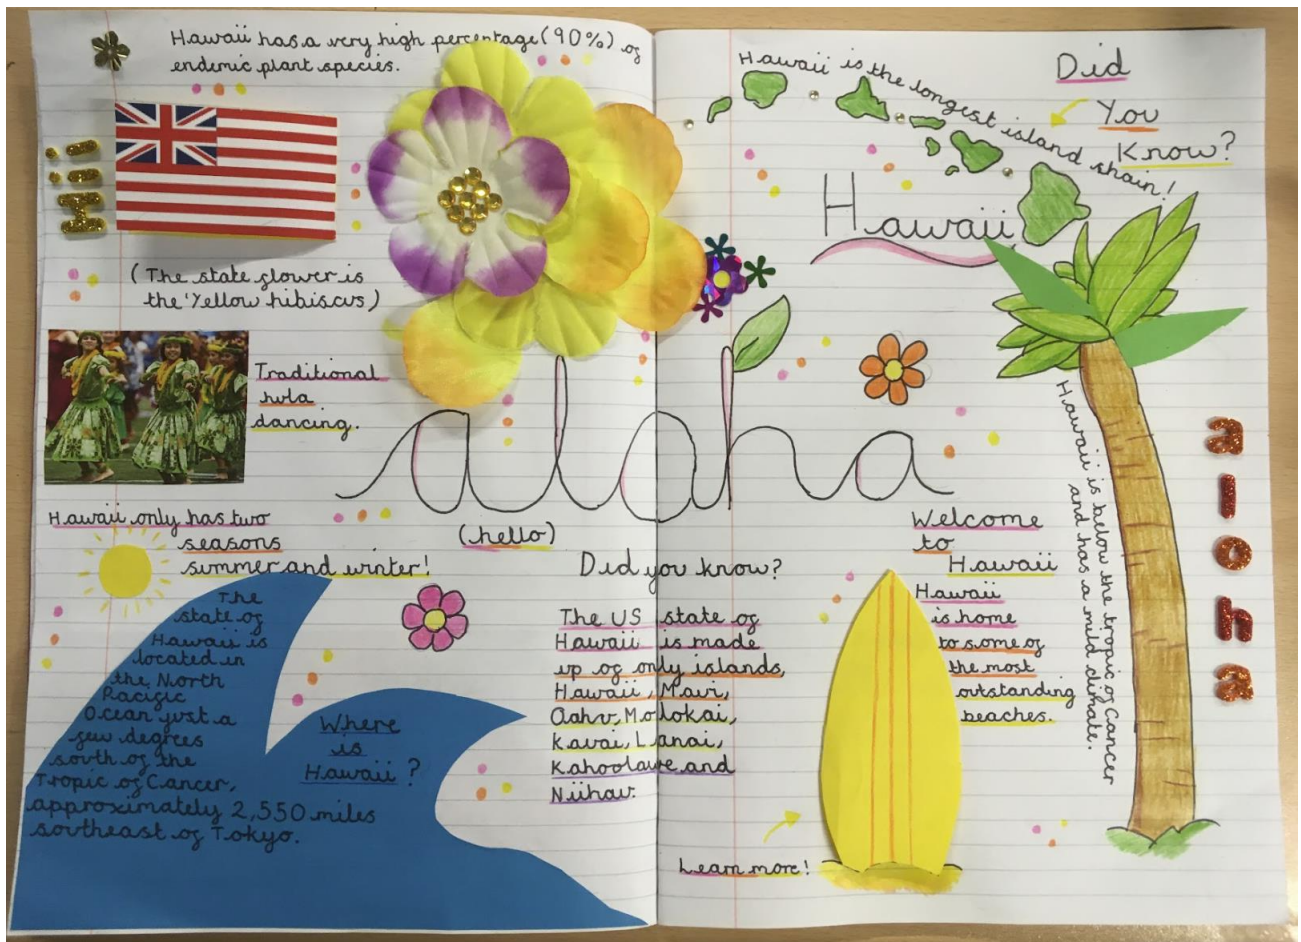 Hawaii has a very high percentage (90%) of
endemic plant species.
Hi!
(The state flower is
the Yellow hibiscus)
Traditional
hula
dancing.
Hawaii only has two
seasons
summer and winter!
The
state of
Hawaii is
located in
the North
Pacific
Ocean just a
few degrees
south of the
Tropic of Cancer,
approximately 2,550 miles
southeast of Tokyo.
Where
is
Hawaii?
aloha
(hello)
Did you know?
The US state of
Hawaii is made
up of only islands,
Hawaii, Maui,
Oahu, Molokai,
Kauai, Lanai,
Kahoolawe and
Niihau.
Hawaii is the longest island chain!
Did
You
Know?
Hawaii
Welcome
to
Hawaii
Hawaii
is home
to some of
the most
outstanding
beaches.
Learn more!
Hawaii is below the tropic of Cancer
and has a mild climate.
aloha